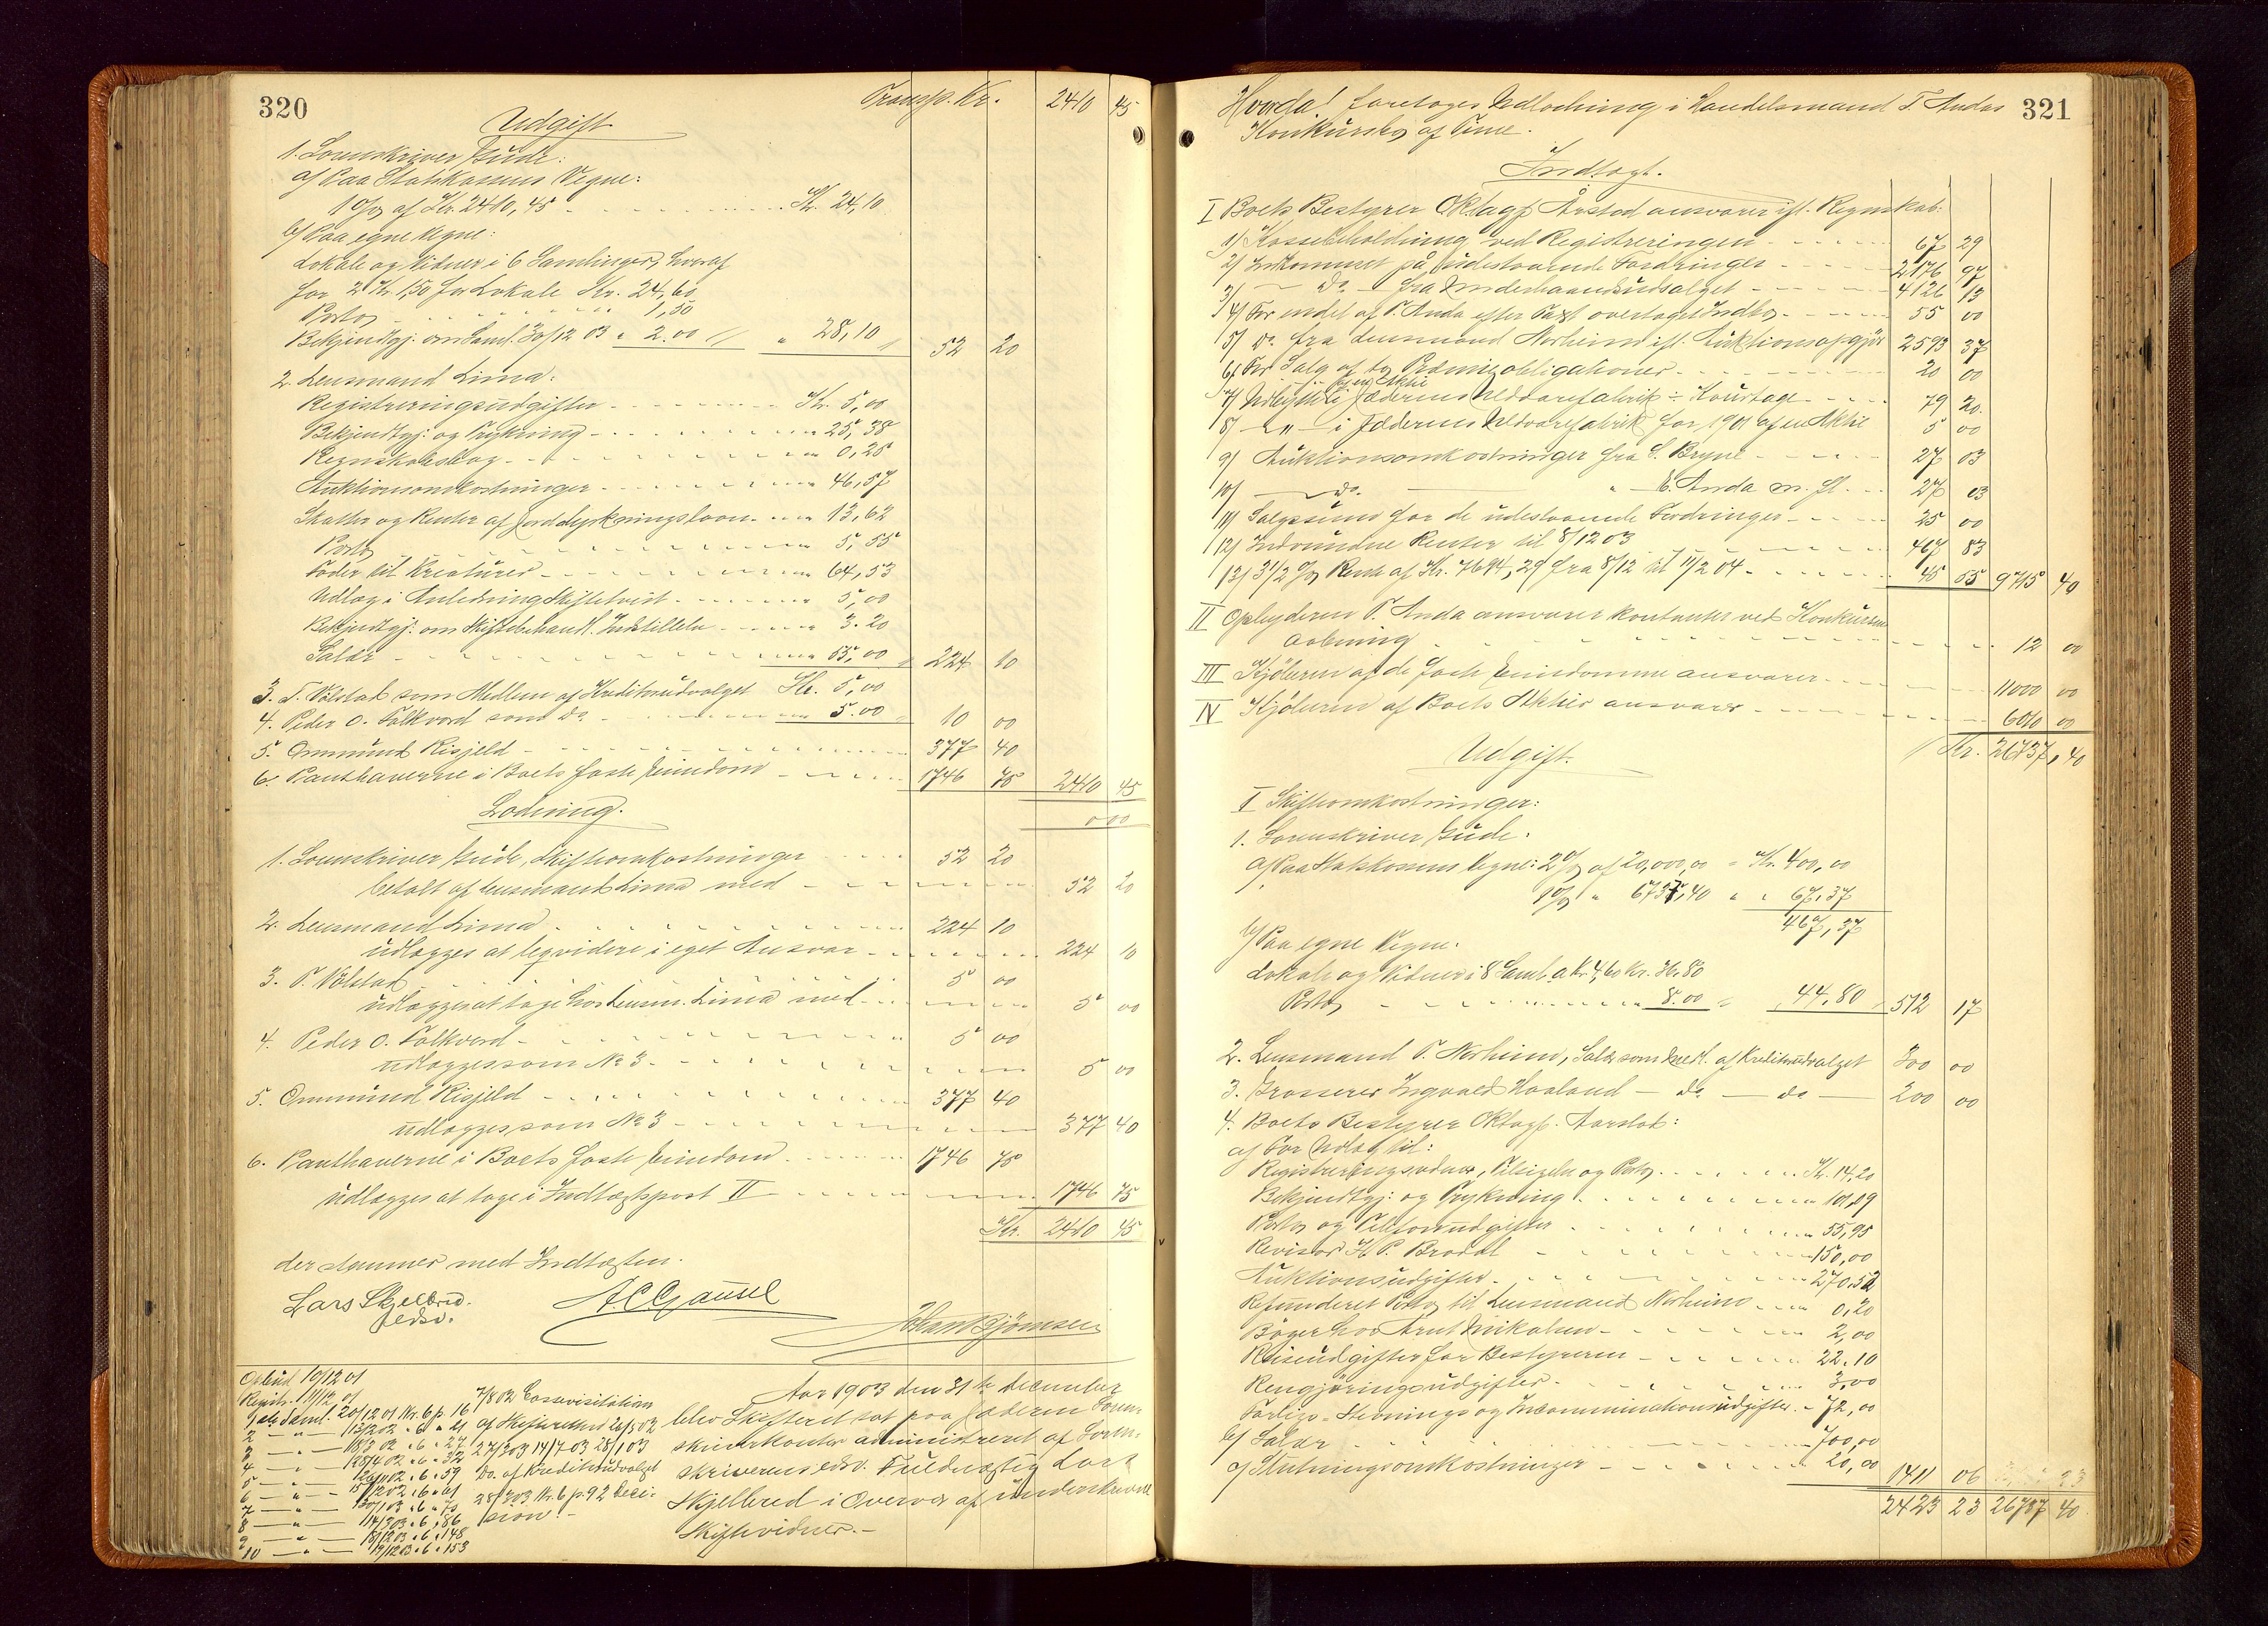 320
Transp. Kr. 2410 45
Udgift
1. Sorenskriver Gude:
a/ Paa Statskassens Vegne:
1 o/o af Kr. 2410,45 Kr. 24,10
b/ Paa egne Vegne:
Lokale og Vidner i 6 Samlinger, hveraf
for 2 Kr. 1,50 for Lokale Kr. 24,60
Porto 1,50
Bekjendtgj. om Saml. 30/12 03 " 2.00 " 28,10 52 20
2. Lensmand Lima:
Registreringsudgifter Kr. 5,00
Bekjendtgj. og Trykning " 25,38
Regnskabsbog " 0,25
Auktionsomkostninger " 46,57
Skatter og Renter af Jorddyrkningslaan " 13,62
Porto " 5,55
Foder til Kreaturer " 64,53
Udlæg i Anledning Skiftetvist " 5,00
Bekjendtgj. om Skiftebehandl. Indstillelse " 3.20
Salær " 55,00 224 10
3. T. Vølstad som Medlem af Kreditorudvalget Kr. 5,00
4. Peder O. Folkvord som do " 5.00 10 00
5. Ommund Risjeld 377 40
6. Panthaverne i Boets faste Eiendom 1746 75 2410 45
000
Lodning.
1. Sorenskriver Gude, Skifteomkostninger 52 20
betalt af Lensmand Lima med 52 20
2. Lensmand Lima 224 10
udlægges at liqvidere i eget Ansvar 224 10
3. T. Vølstad 5 00
udlægges at tage hos Lensm. Lima med 5 00
4. Peder O. Folkvord 5 00
udlægges som No 3 5 00
5. Ommund Risjeld 377 40
udlægges som No 3 377 40
6. Panthaverne i Boets faste Eiendom 1746 75
udlægges at tage i Indtægtspost II 1746 75
Kr. 2410 45
der stemmer med Indtægten.
Lars Skjelbred. A C Gausel
edsv.
Johan Bjørnsen
Opbud 10/12 01
Registr. 11/12 01
1ste Saml. 20/12 01 Nr. 6 p. 16
2 — " — 13/2 02 " 6 " 21
3 — " — 18/3 02 " 6 " 27
4 — " — 25/4 02 " 6 " 32
5 — " — " 6 " 59
6 — " — 15/12 02 " 6 " 61
7 — " — 30/1 03 " 6 " 70
8 — " — 14/3 03 " 6 " 86
9 — " — 18/12 03 " 6 " 148
10 — " — 19/12 03 " 6 " 153
7/8 02 Cassavisitation
af Skifteretten 26/5 02
27/3 03 14/7 03 28/1 03
Do. af Kreditorudvalget
28/3 03 Nr. 6 p. 92 Deci-
sion.
Aar 1903 den 31te December
blev Skifteret sat paa Jæderens Soren-
skriverkontor administreret af Soren-
skriverens edsv. Fuldmægtig Lars
Skjelbred i Overvær af underskrevne
Skiftevidner. —
321
Hvorda! foretoges Udlodning i Handelsmand T. Andas
Konkursbo af Time.
Indtægt.
I Boets Bestyrer O.R.sagf. Årstad ansvarer ifl. Regnskab:
1) Kassebeholdning ved Registreringen 67 29
2) Indkommet på udestaaende Fordringer 2176 97
3) — Do. — fra Underhaandsudsalget 4126 13
4) For endel af T. Anda efter Taxt overtaget Indbo 55 00
5) Do. fra Lensmand Norheim ifl. Auktionsopgjør 2593 37
6) For Salg af to Præmieobligationer 20 00
7) Udbytte i Jæderens Uldvarefabrik ÷ Kourtage 79 20
af en Aktie
8) — " — i Jæderens Uldvarefabrik for 1901 af en Aktie 5 00
9) Auktionsomkostninger fra S. Bryne 27 03
10) — Do. — " — E. Anda m. fl. 27 03
11) Salgssum for de udestaaende Fordringer 25 00
12) Indvundne Renter til 8/12 03 467 83
13) 3 1/2 o/o Rente af Kr. 7694,29 fra 8/12 til 11/2 04 45 55 9715 40
II Opbyderen T. Anda ansvarer kontanter ved Konkursens
Aabning 12 00
III Kjøberen af de faste Eiendomme ansvarer 11000 00
IV Kjøberen af Boets Aktier ansvarer 6010 00
Kr. 26737,40
Udgift.
I Skifteomkostninger:
1. Sorenskriver Gude.
a/ Paa Statskassens Vegne: 2 o/o af 20,000,00 = Kr. 400,00
1 o/o " 6737,40 " " 67,37
467,37
b/ Paa egne Vegne.
Lokale og Vidner i 8 Saml. a Kr. 4,60 Kr. 36,80
Porto " 8.00 44,80 512 17
2. Lensmand T. Norheim, Salær som Medl. af Kreditorudvalget 300 00
3. Grosserer Ingvald Haaland — do — do — 200 00
4. Boets Bestyrer O.R.sagf. Aarstad:
a/ For Udlæg til:
Registreringsvidner, Pileigelse og Porto Kr. 14,20
Bekjendtgj. og Trykning " 101,09
Porto og Telefonudgifter " 55,95
Revisor H. P. Brodal " 150,00
Auktionsudgifter " 270,52
Refunderet Porto til Lensmand Norheim " 0,20
Bøger hos Arnt Mikalsen " 2,00
Reiseudgifter for Bestyreren " 22.10
Rengjøringsudgifter " 3,00
Forligs-Stevnings og Incamminationsudgifter " 72,00
b/ Salær " 700,00
c/ Slutningsomkostninger " 20,00 1411 06
2423 23 26737 40